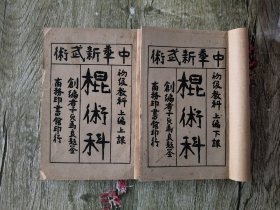 中華新武術
初級教科 上編上課
棍術科
創編者子貞馬良
商務印書館印行
中華新武術
初級教科 上編下課
棍術科
創編者子貞馬良
商務印書館印行